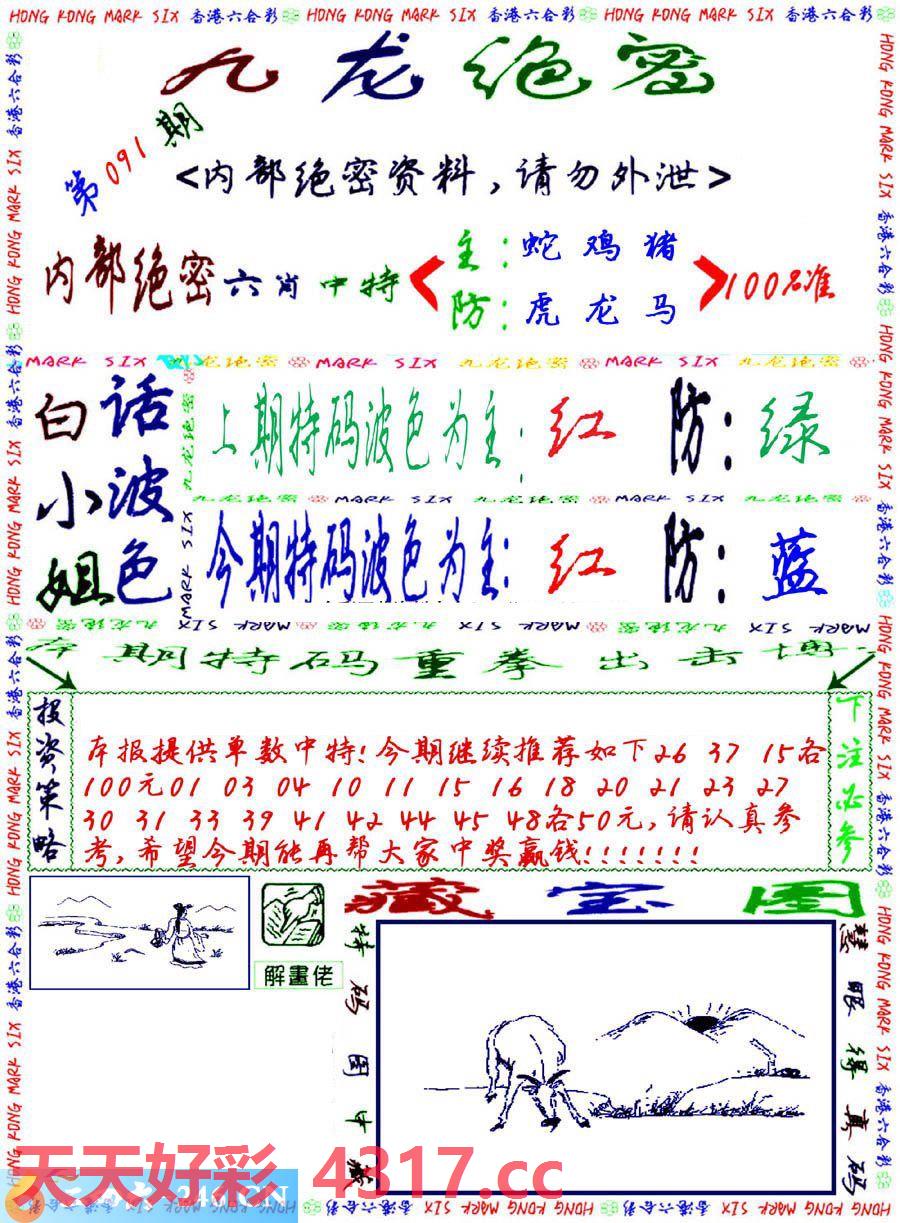 HONG KONG MARK SIX 香港六合彩 HONG KONG MARK SIX 香港六合彩 HONG KONG MARK SIX 香港六合彩
九龙绝密
第091期
<内部绝密资料,请勿外泄>
内部绝密六肖中特
主:蛇鸡猪
防:虎龙马
100%准
MARK SIX 九龙绝密 MARK SIX 九龙绝密 MARK SIX 九龙绝密
白话小波姐色
上期特码波色为主:红 防:绿
九龙绝密 MARK SIX 九龙绝密 MARK SIX 九龙绝密
今期特码波色为主:红 防:蓝
期特码重拳出击
投资策略
本报提供单数中特!今期继续推荐如下26 37 15各
100元01 03 04 10 11 15 16 18 20 21 23 27
30 31 33 39 41 42 44 45 48各50元,请认真参
考,希望今期能再帮大家中奖赢钱!!!!!!!
下注必参
解畫佬
藏宝图
特码图中
慧眼得真码
天天好彩 4317.cc
246.CN